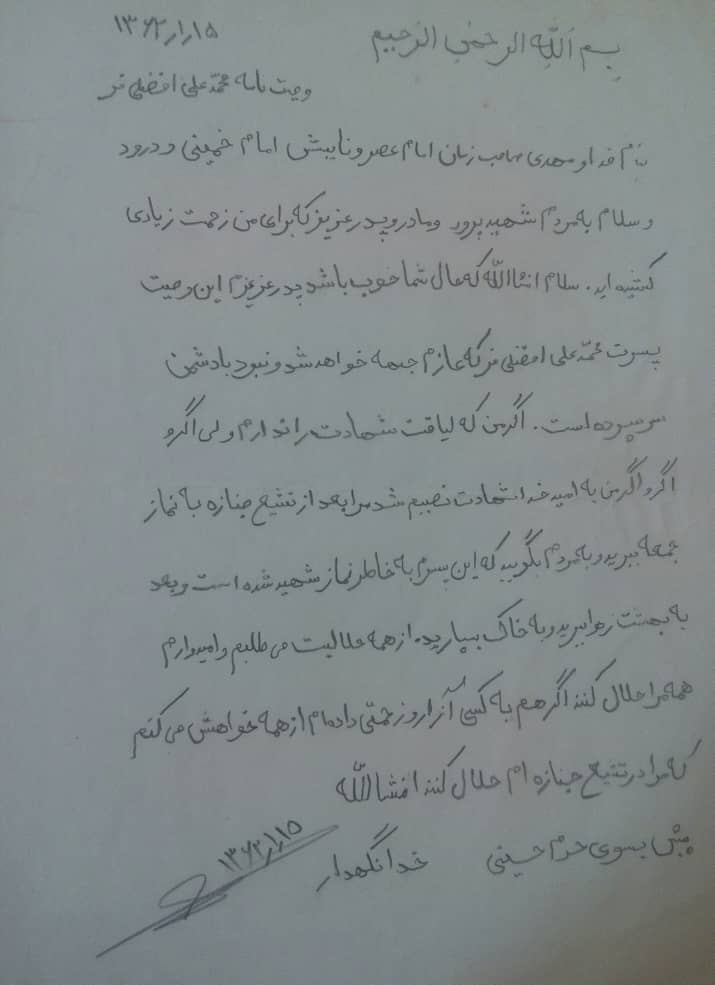 ۱۳۶۲/۱/۱۵
بسم الله الرحمن الرحیم
وصیت نامه محمد علی افضلی فر
بنام خدا و مهدی صاحب زمان امام عصر و نایبش امام خمینی و درود
و سلام به مردم شهید پرور و مادر و پدر عزیز که برای من زحمت زیادی
کشیده اید. سلام انشاالله که حال شما خوب باشد پدر عزیزم این وصیت
پسرت محمد علی افضلی فر که عازم جبهه خواهد شد و نبود باد شمن
سر سپرده است. اگر من که لیاقت شهادت را ندارم ولی اگر و
اگر و اگر من به امید خدا شهادت نصیبم شد مرا بعد از تشیع جنازه به نماز
جمعه ببرید و به مردم بگویید که این پسرم به خاطر نماز شهید شده است و بعد
به بهشت زهرا ببرید و به خاک بسپارید. از همه حلالیت می طلبم و امیدوارم
همه مرا حلال کنند اگر هم به کسی آزار و زحمتی داده ام از همه خواهش می کنم
که مرا در تشیع جنازه ام حلال کنند انشاالله
پیش بسوی حرم حسینی خدا نگهدار
۱۳۶۲/۱/۱۵